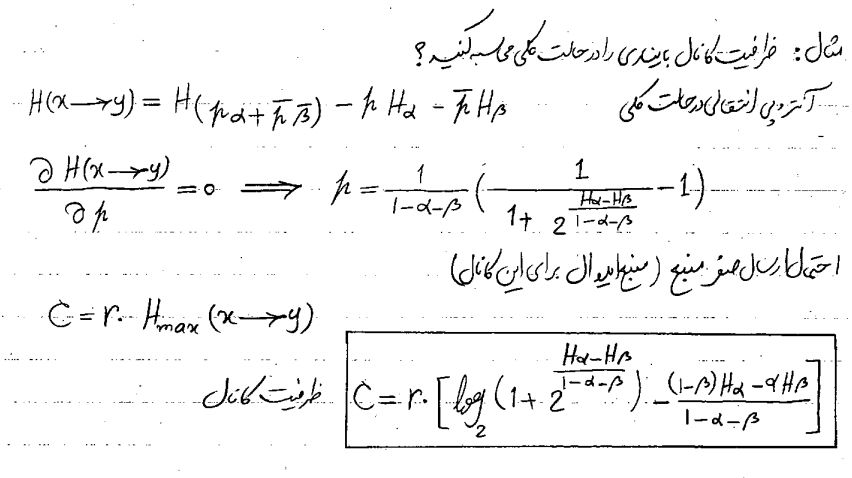 مثال: ظرفیت کانال باینری را در حالت کلی محاسبه کنید؟
آنتروپی انتقالی در حالت کلی H(x→y) = H(pα + p̅ β̅) − p Hα − p̅ Hβ
∂H(x→y)/∂p = 0 ⟹ p = 1/(1−α−β) (1/(1 + 2^((Hα−Hβ)/(1−α−β))) − 1)
احتمال ارسال صفر منبع (منبع ایده‌آل برای این کانال)
C = r. H_max (x→y)
ظرفیت کانال C = r. [log₂ (1 + 2^((Hα−Hβ)/(1−α−β))) − ((1−β)Hα − αHβ)/(1−α−β)]